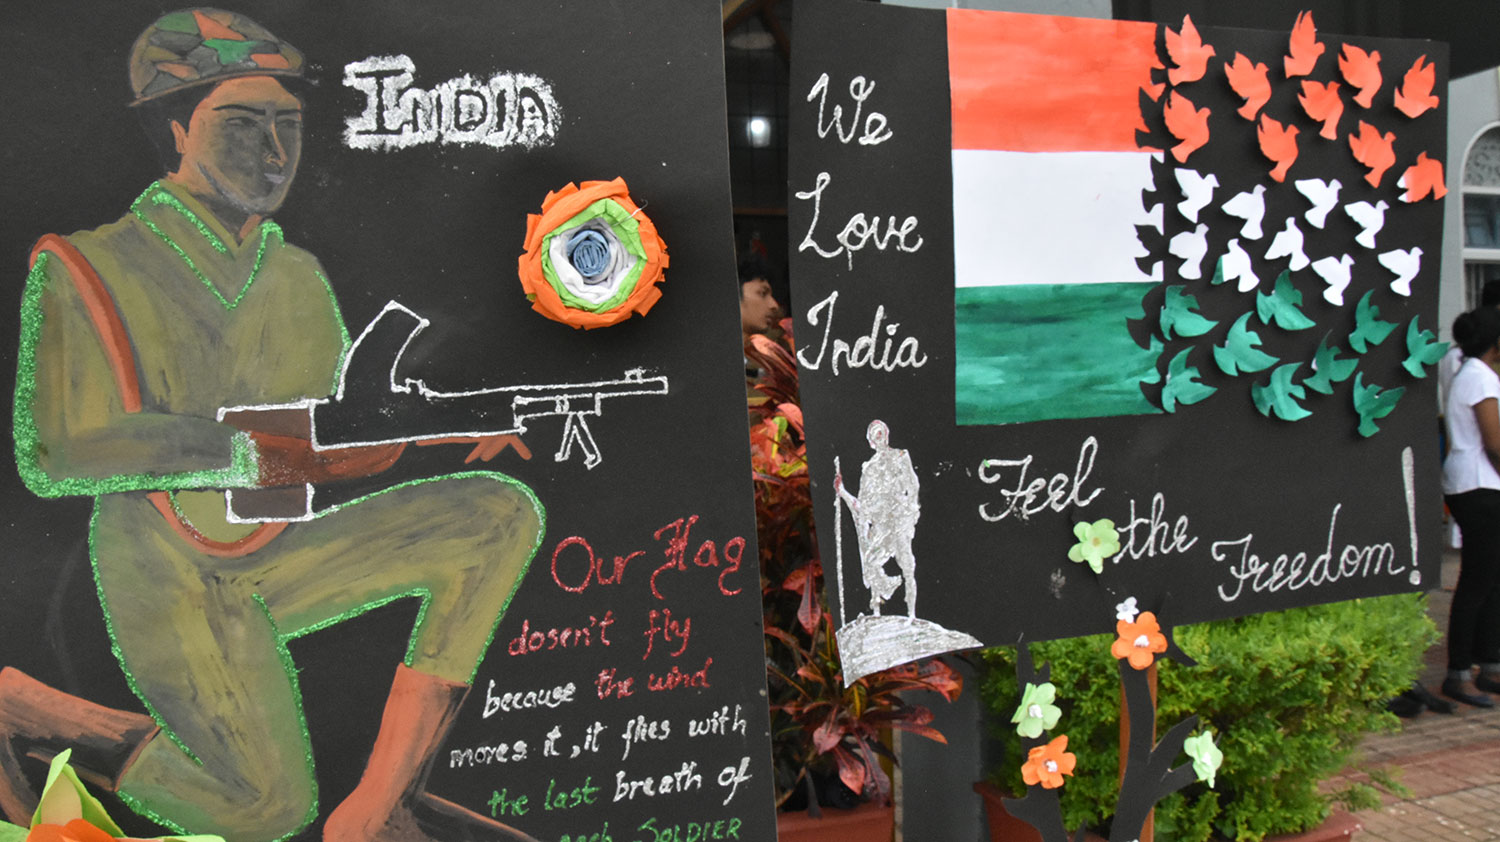 INDIA
Our Flag
dosen't fly
because the wind
moves it, it flies with
the last breath of
each SOLDIER
We
Love
India
Feel
the
Freedom!